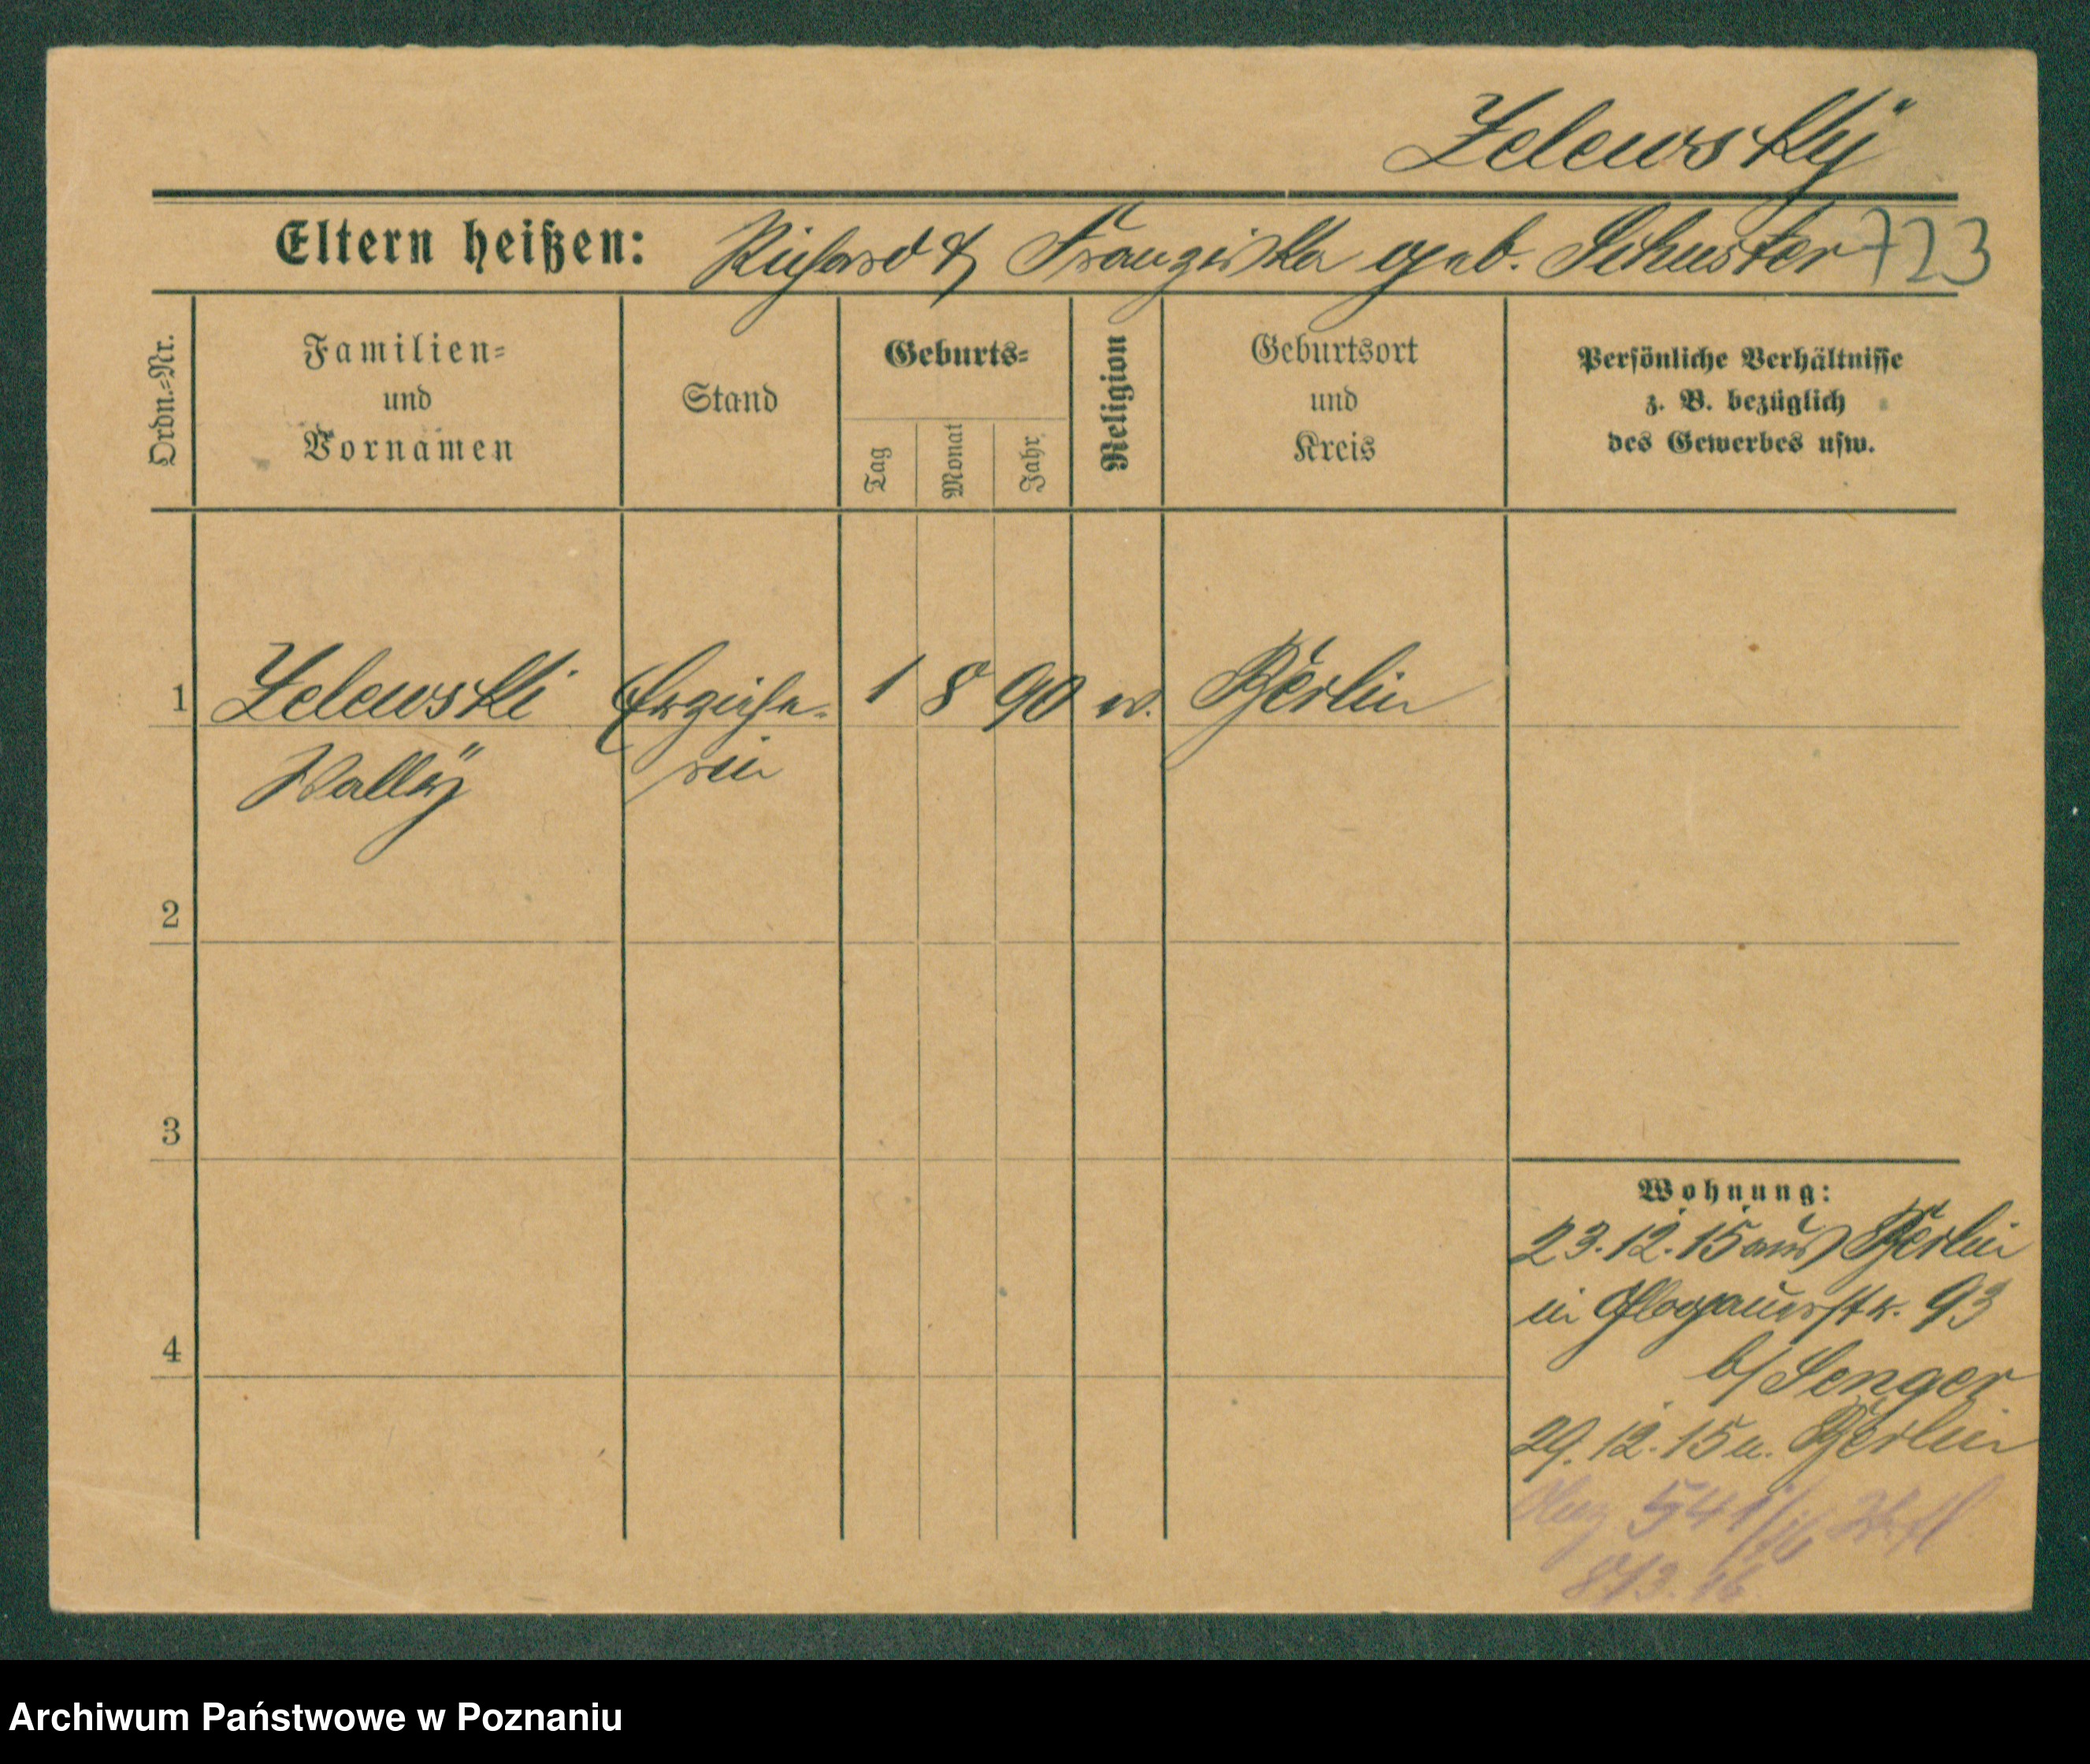 Zelewsky
Eltern heißen: Richard & Franziska geb. Schuster 723
Ordn.=Nr.
Familien=
und
Vornamen
Stand
Geburts=
Tag
Monat
Jahr
Religion
Geburtsort
und
Kreis
Persönliche Verhältnisse
z. B. bezüglich
des Gewerbes usw.
1 Zelewski Erziehe- 1 8 90 w. Berlin
Wally rin
2
3
4
Wohnung:
23.12.15 aus Berlin
in Glogauerstr. 93
b/ Senger
29.12.15 n. Berlin
541
Archiwum Państwowe w Poznaniu